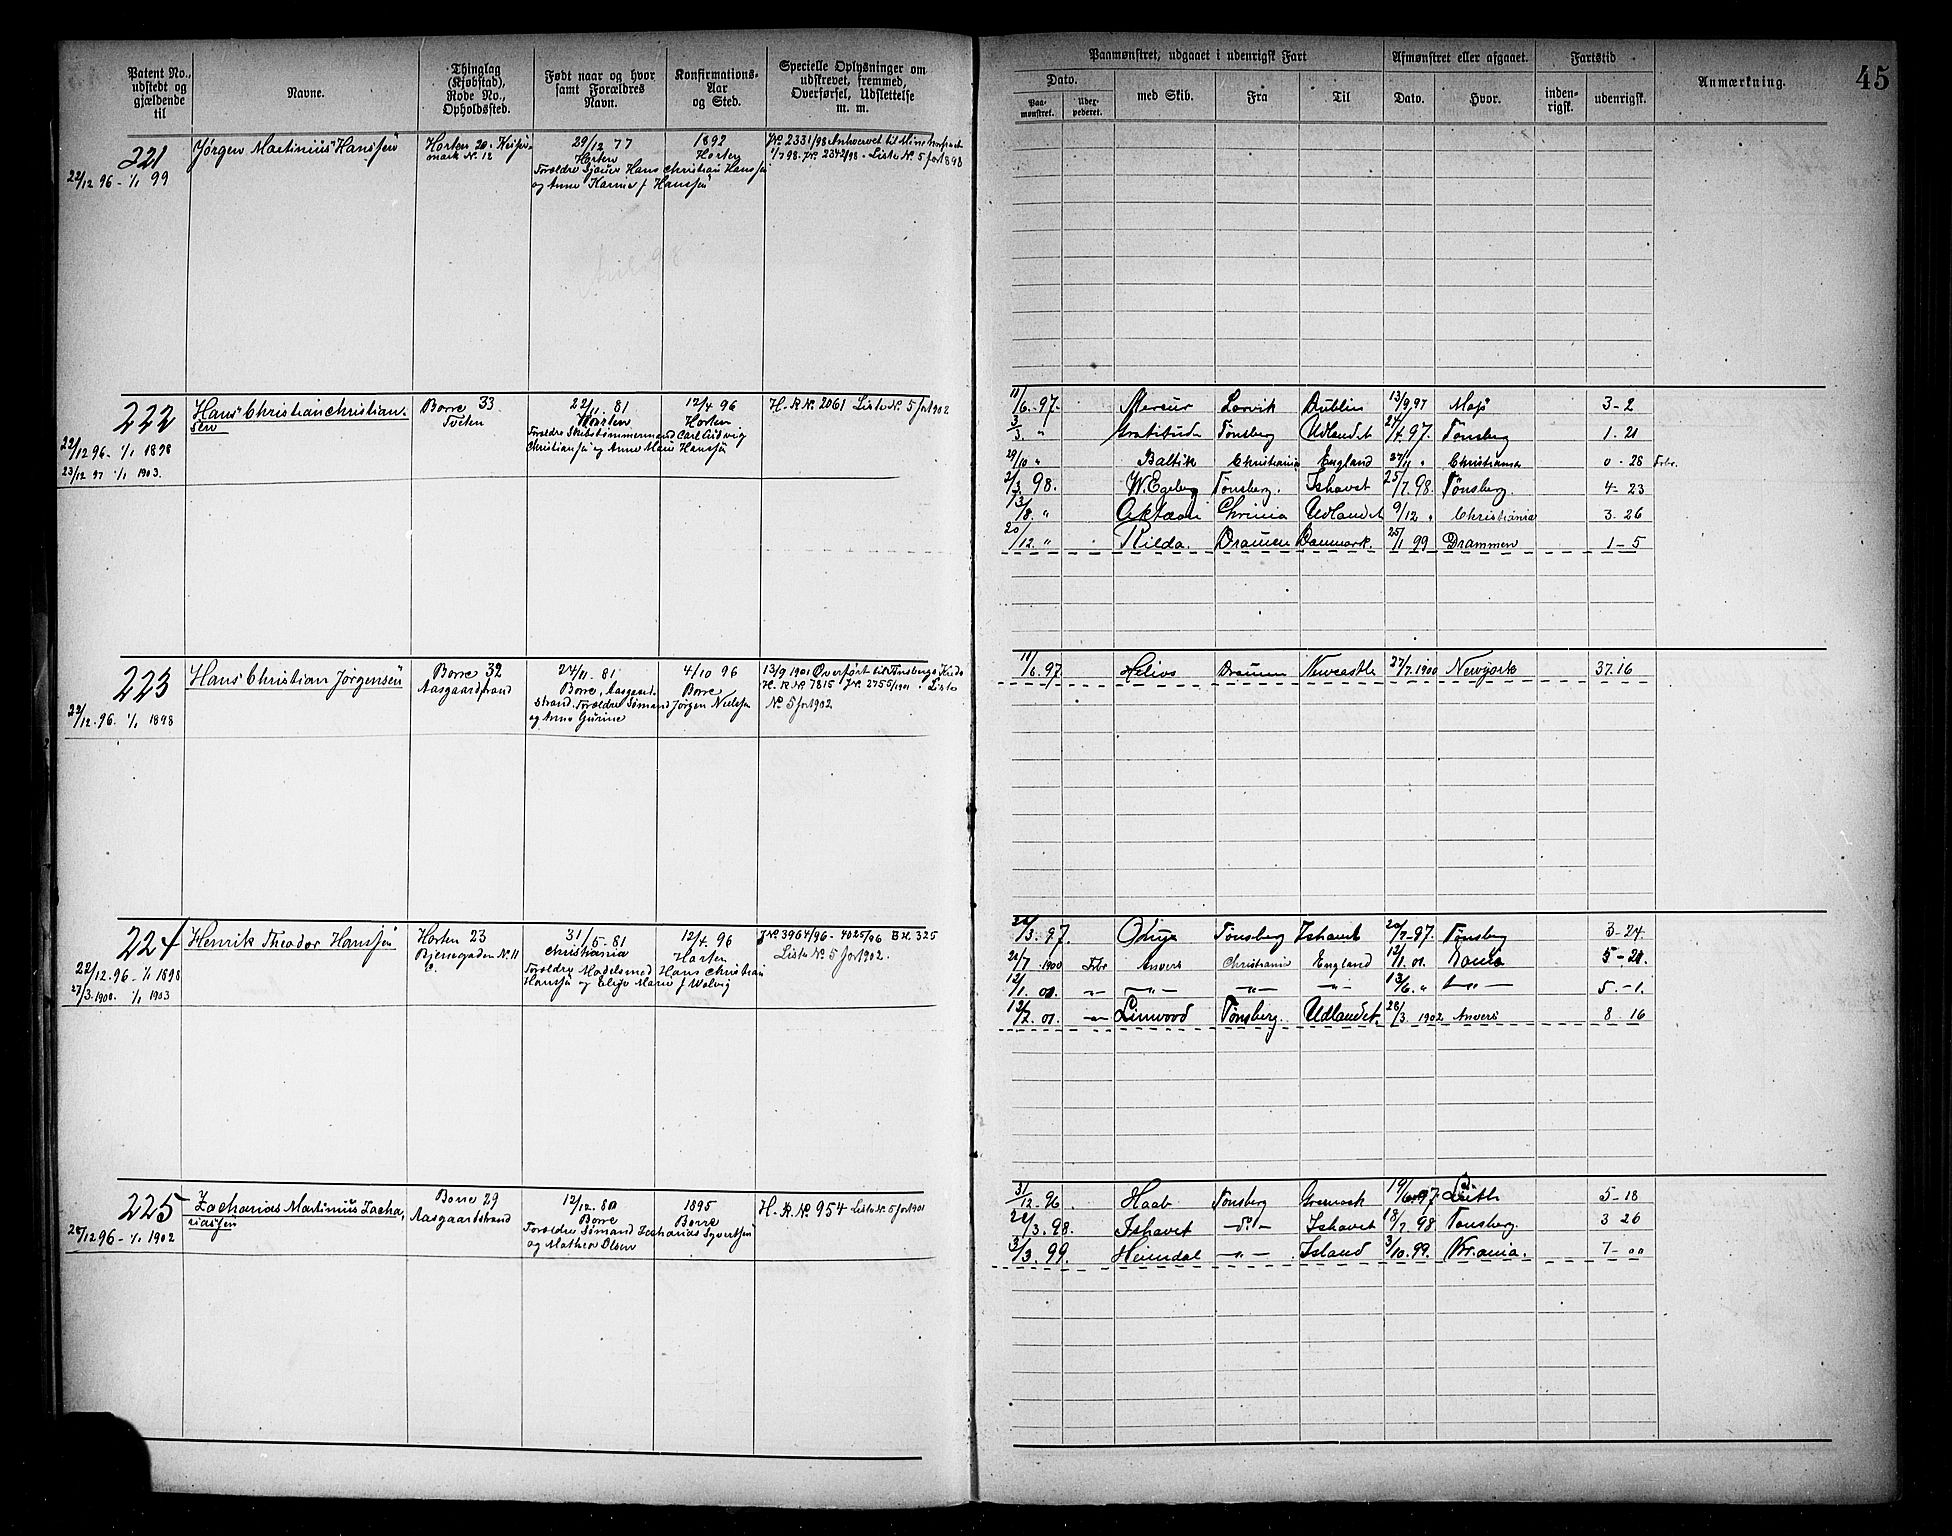 Patent No., udstedt og gjældende til
Navne.
Thinglag (Kjøbstad), Rode No., Opholdssted.
Født naar og hvor samt Forældres Navn.
Konfirmations-Aar og Sted.
Specielle Oplysninger om udskrevet, fremmed, Overførsel, Udslettelse m. m.
Paamønstret, udgaaet i udenrigsk Fart
Afmønstret eller afgaaet.
Fartstid
Anmærkning.
45
Dato.
Paa-mønstret.
med Skib.
Fra
Til
Dato.
Hvor.
inden-rigsk.
udenrigsk.
221
22/12 96 - 1/1 99
Jørgen Martinius Hanssen
Horten 20.
mark N. 12
29/12 77
Horten
Forældre Hans Christian Hanssen
og Anne Karine f Hanssen
1892
Horten
J.No 2331/98
1/7 98. J.No 2342/98. Liste No. 5 for 1898
222
22/12 96 - 1/1 1898
23/12 97 1/1 1903.
Hans Christian Christian-
sen
Borre 33
Tveten
22/11. 81
Horsten
Forældre Skibstømmermand Carl Ludvig
Christiansen og Anne Marie Hanssen
12/4 96
Horten
H. R. No. 2061 Liste No. 5 for 1902
11/6. 97. Mercur Larvik Dublin 13/9 97 Moss 3-2
3/3. " Gratitude Tønsberg Udlandet 24/4. 97. Tønsberg 1. 21
29/10 " Baltik Christiania England 27/11 " Christiania 0 - 28
2/3 98. W. Egeberg Tønsberg. Ishavet 25/7. 98. Tønsberg. 4- 23
13/8. " Aktæon Chrinia Udlandet 9/12 " Christiania 3. 26
20/12. " Kilda. Dramen Danmark. 25/1 99 Drammen 1-5
223
22/12. 96. 1/1 1898
Hans Christian Jørgensen
Borre 32
Aasgaardstrand
24/11. 81
Borre, Aasgaard-
strand. Forældre Sømand Jørgen Nielsen
og Anne Gurine
4/10 96
Borre
13/9 1901 Overført til Tønsbergs Kreds
H. R. No 7815 J.No. 2755/1901. Liste
No. 5 for 1902
11/6. 97. Helios Dramen Newcastle 27/7. 1900 Newyork 37. 16
224
22/12. 96. - 1/1 1898
27/3. 1900. 1/1 1903
Henrik Theodor Hanssen
Horten 23
Bjerregaden No. 11
c.
31/5-81
Christiania
Forældre Modelsmed Hans Christian
Hanssen og Elise Marie f Walvig
12/4. 96
Horten
J.No 3964/96 - 4025/96 B H. 325
Liste No. 5 for 1902.
26/3. 97. Tønsberg Ishavet 20/7-97. Tønsberg 3-24.
21/7. 1900 Anvers Christiania England 12/1. 01. 5-21
12/1. 01. -"- -"- -"- -"- 13/6. " -"- 5.-1.
13/7. 01. -"- Linwood Tønsberg. Udlandet. 28/3. 1902 Anvers 8. 16
225
22/12 96 - 1/1 1902
Zacharias Martinius Zacha-
riassen
Borre 29
Aasgaardstrand
12/12. 80
Borre
Forældre Sømand Zacharias Syvertsen
og Mathea Olsen
1895
Borre
H. R. No. 954 Liste No. 5 for 1901
31/12. 96. Haab Tønsberg 97. Leith 5-18
22/3. 98. Ishavet -"- Ishavet 18/7 98 Tønsberg. 3 26
3/3. 99. Heimdal -"- Island 3/10. 99. Kr.ania. 7-00